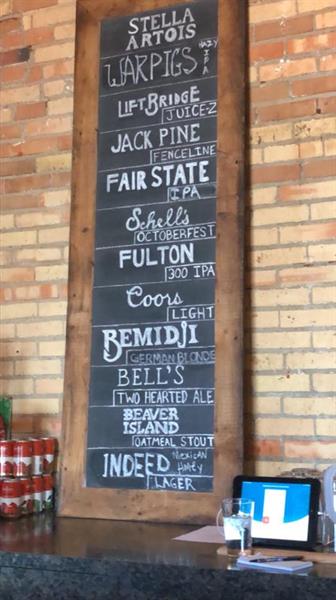 STELLA
ARTOIS
WARPIGS HAZY IPA
LIFT BRIDGE
JUICE-Z
JACK PINE
FENCELINE
FAIR STATE
IPA
Schell's
OCTOBERFEST
FULTON
300 IPA
Coors
LIGHT
BEMIDJI
GERMAN BLONDE
BELL'S
TWO HEARTED ALE
BEAVER
ISLAND
OATMEAL STOUT
INDEED Mexican Honey
LAGER